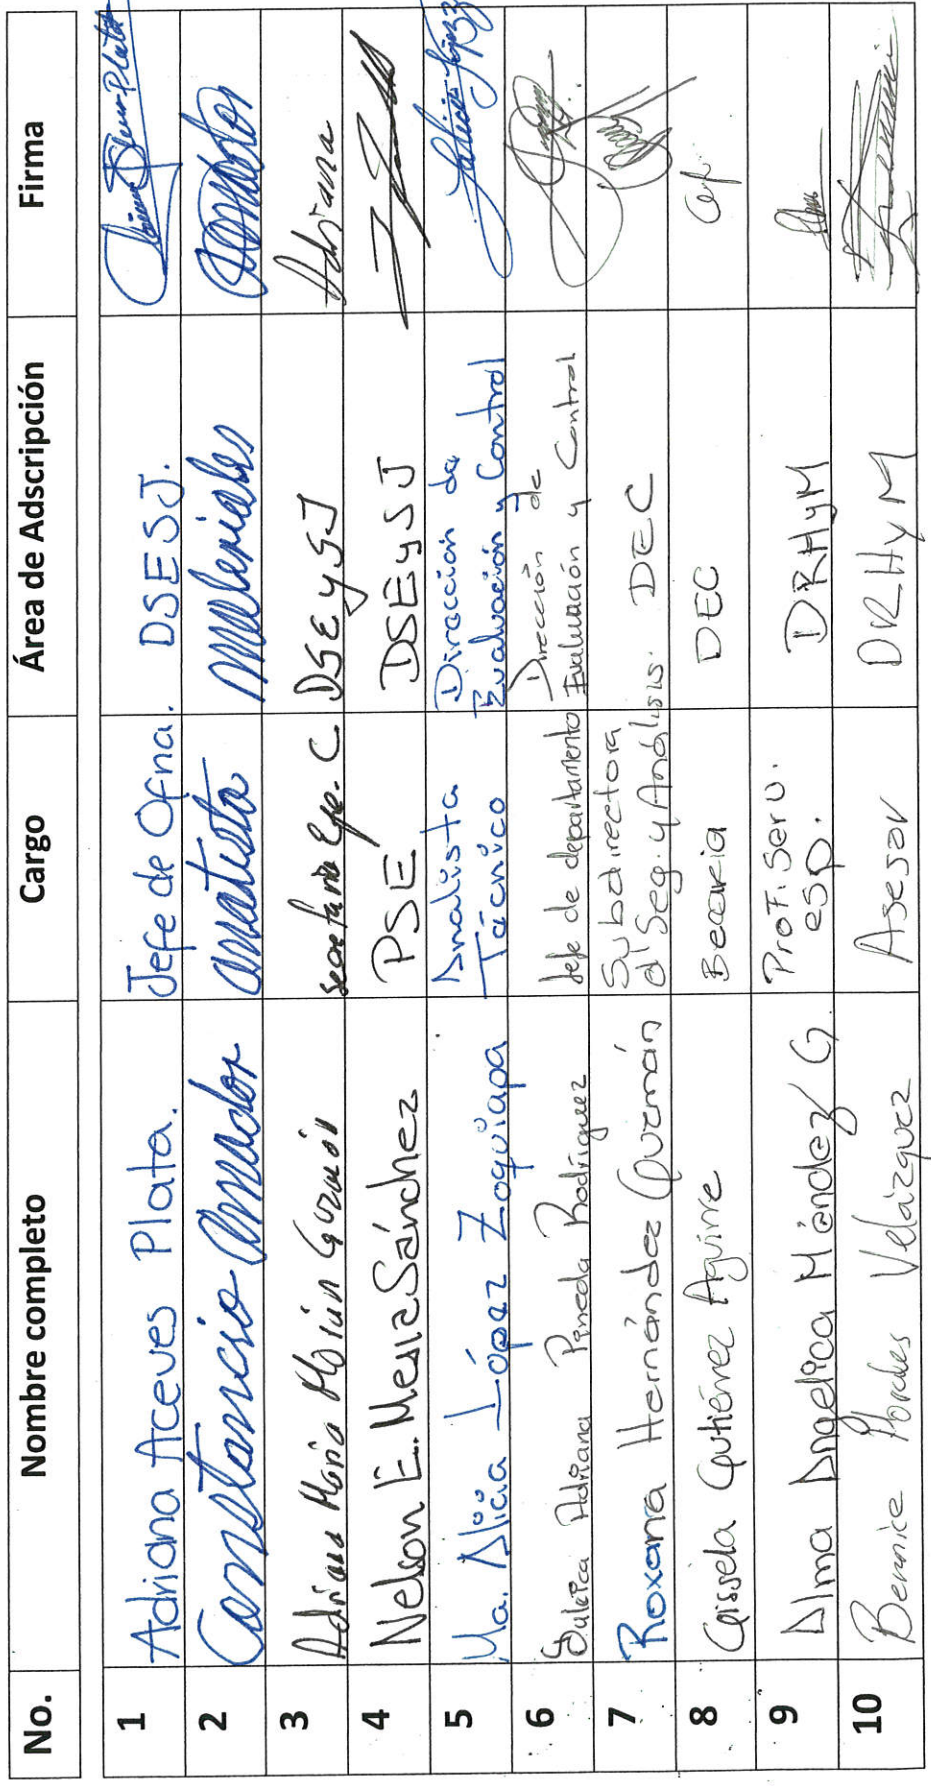 No. Nombre completo Cargo Área de Adscripción Firma
1 Adriana Aceves Plata. Jefe de Ofna. DSESJ.
2 Constancio Amador analista Materiales Amador
3 Adriana María Guzmán secretaria Eje. C DSEySJ Adriana
4 Nelson E. Mesta Sánchez PSE DSEySJ
5 Ma. Alicia López Zoquiapa Analista Técnico Dirección de Evaluación y Control Alicia López Z
6 Adriana Pineda Rodríguez Jefe de departamento Dirección de Evaluación y Control
7 Roxana Hernández Guzmán Subdirectora d Seg. y Análisis. DEC
8 Gissela Gutiérrez Aguirre Becaria DEC
9 Alma Angelica Méndez G Prof. Serv. esp. DRHyM
10 Berenice Morales Velázquez Asesor DRHyM